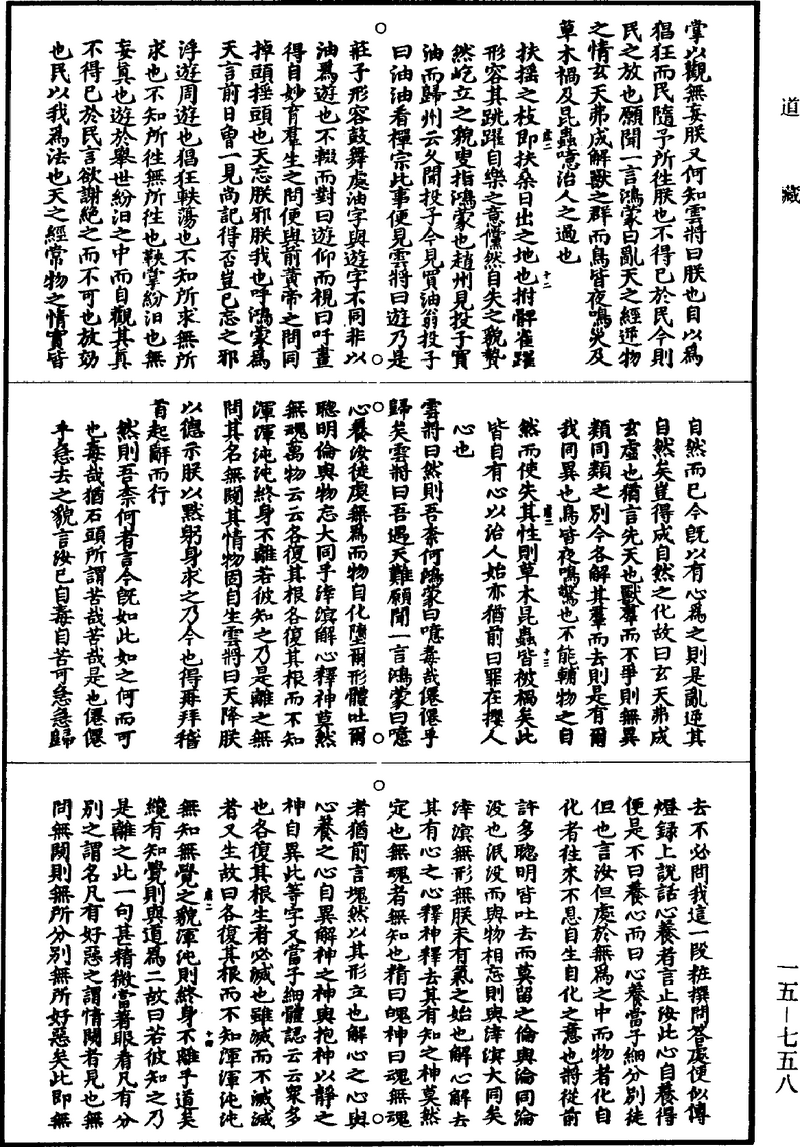 道藏
掌以觀無妄朕又何知雲將曰朕也自以爲
猖狂而民隨予所往朕也不得已於民今則
民之放也願聞一言鴻蒙曰亂天之經逆物
之情玄天弗成解獸之群而鳥皆夜鳴災及
草木禍及昆蟲噫治人之過也
扶搖之枝即扶桑日出之地也拊髀雀躍
形容其跳躍自樂之意儻然自失之貌贄
然屹立之貌叟指鴻蒙也趙州見投子賣
油而歸州云久聞投子今見買油翁投子
曰油油看禪宗此事便見雲將曰遊乃是
莊子形容鼓舞處油字與遊字不同非以
油爲遊也不輟而對曰遊仰而視曰吁畫
得自妙育羣生之問便與前黃帝之問同
掉頭揺頭也天忘朕邪朕我也呼鴻蒙爲
天言前日曾一見尚記得否豈已忘之邪
浮遊周遊也猖狂軼蕩也不知所求無所
求也不知所往無所往也鞅掌紛汨也無
妄真也遊於舉世紛汨之中而自觀其真
不得已於民言欲謝絶之而不可也放効
也民以我爲法也天之經常物之情實皆
自然而已今旣以有心爲之則是亂逆其
自然矣豈得成自然之化故曰玄天弗成
玄虛也猶言先天也獸羣而不爭則無異
類同類之別今各解其羣而去則是有爾
我同異也鳥皆夜鳴驚也不能輔物之自
然而使失其性則草木昆蟲皆被禍矣此
皆自有心以治人始亦猶前曰罪在攖人
心也
雲將曰然則吾柰何鴻蒙曰噫毒哉僊僊乎
歸矣雲將曰吾遇天難願聞一言鴻蒙曰噫
心養汝徒處無爲而物自化墮爾形體吐爾
聰明倫與物忘大同乎涬溟解心釋神莫然
無魂萬物云云各復其根各復其根而不知
渾渾沌沌終身不離若彼知之乃是離之無
問其名無闚其情物固自生雲將曰天降朕
以德示朕以默躬身求之乃今也得再拜稽
首起辭而行
然則吾柰何者言今旣如此如之何而可
也毒哉猶石頭所謂苦哉苦哉是也僊僊
乎急去之貌言汝已自毒自苦可急急歸
去不必問我這一段粧撰問答處便似傳
燈録上説話心養者言止汝此心自養得
便是不曰養心而曰心養當子細分別徒
但也言汝但處於無爲之中而物者化自
化者往來不息自生自化之意也將從前
許多聰明皆吐去而莫留之倫與淪同淪
没也泯没而與物相忘則與涬溟大同矣
涬溟無形無朕未有氣之始也解心解去
其有心之心釋神釋去其有知之神莫然
定也無魂者無知也精曰魄神曰魂無魂
者猶前言塊然以其形立也解心之心與
心養之心自異解神之神與抱神以靜之
神自異此等字又當子細體認云云衆多
也各復其根生者必滅也雖滅而不滅滅
者又生故曰各復其根而不知渾渾沌沌
無知無覺之貌渾沌則終身不離乎道矣
纔有知覺則與道爲二故曰若彼知之乃
是離之此一句甚精微當著眼看凡有分
別之謂名凡有好惡之謂情闚者見也無
問無闚則無所分別無所好惡矣此即無
一五—七五八